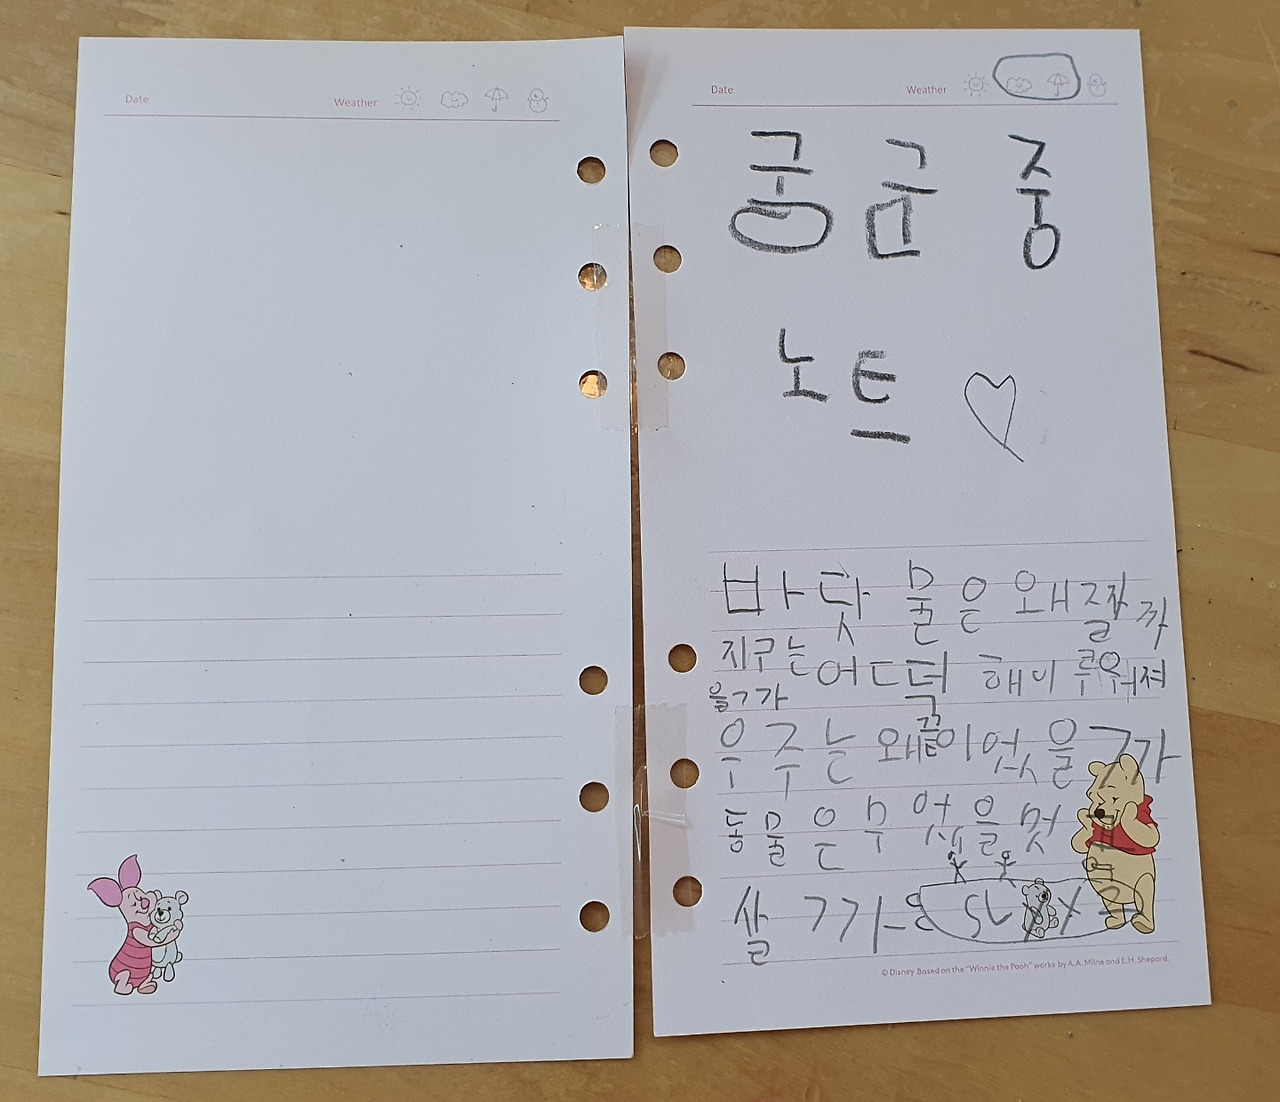 Date Weather
Date Weather
궁금중
노트
바닷물은 왜 짤까
지구는 어드덕 해이루워져
을ㄱ가
우주는 왜 끝이 없을ㄱ가
동물은 무엇을 먹
살 ㄱ가
© Disney Based on the "Winnie the Pooh" works by A.A. Milne and E.H. Shepard.